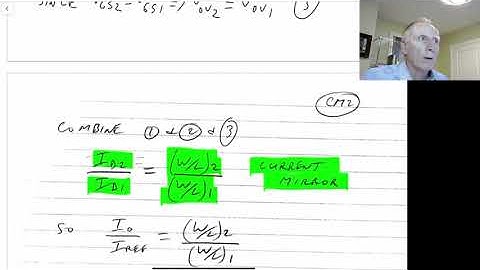 SINCE VGS2 = VGS1 => VOV2 = VOV1 (3)
CM2
COMBINE (1) & (2) & (3)
ID2 / ID1 = (W/L)2 / (W/L)1 CURRENT MIRROR
SO IO / IREF = (W/L)2 / (W/L)1